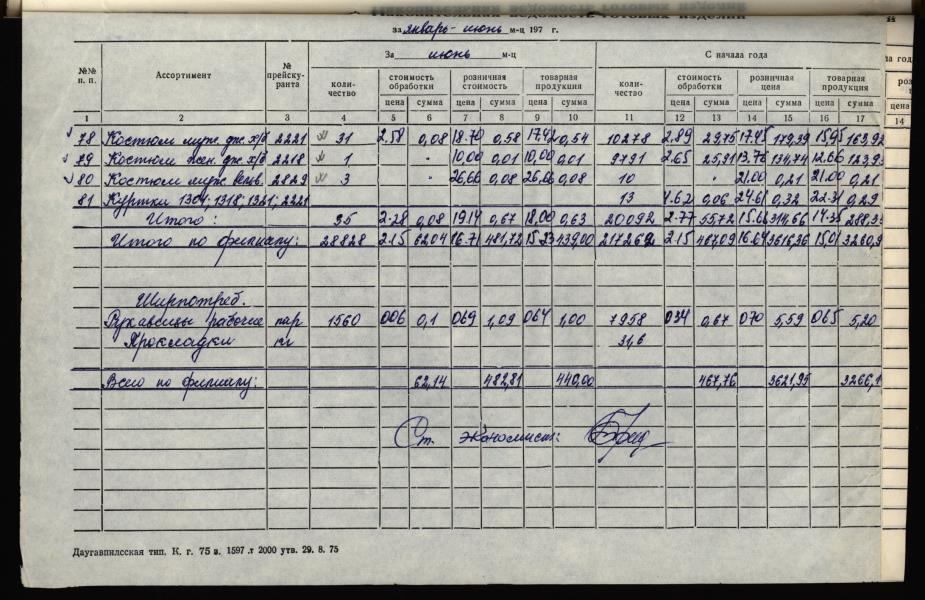 за январь - июнь м-ц 197 г.
За июнь м-ц
С начала года
№№ п. п. Ассортимент № прейску-ранта коли-чество стоимость обработки розничная стоимость товарная продукция коли-чество стоимость обработки розничная цена товарная продукция
цена сумма цена сумма цена сумма цена сумма цена сумма цена сумма цена
1 2 3 4 5 6 7 8 9 10 11 12 13 14 15 16 17 14
78 Костюм муж. дж. х/б 2221 31 2.58 0,08 18.70 0,58 17.42 0,54 10278 2.89 29,75 17.45 179,39 15,95 163,93
79 Костюм жен. дж. х/б 2218 1 10,00 0,01 10,00 0,01 9791 2.65 25,91 13.76 134,74 12.66 123,93
80 Костюм муж. вельв. 2829 3 26,66 0,08 26,66 0,08 10 21.00 0,21 21.00 0,21
81 Куртки 1304; 1318; 1321; 2221 13 4.62 0,06 24.61 0,32 22.31 0,29
Итого: 35 2.28 0,08 19.14 0,67 18,00 0,63 20092 2.77 55.72 15.66 314,66 14.35 288.35
Итого по филиалу: 28828 2.15 62,04 16.71 481,72 15.23 439,00 217262 2.15 467,09 16.64 3616,36 15,01 3260,9
Ширпотреб.
Рукавицы рабочие пар 1560 006 0,1 069 1,09 064 1,00 7958 034 0,67 070 5,59 065 5,20
Прокладки кг 31,6
Всего по филиалу: 62,14 482,81 440,00 467,76 3621,95 3266,1
Ст. экономист:
Даугавпилсская тип. К. г. 75 з. 1597 .т 2000 утв. 29. 8. 75